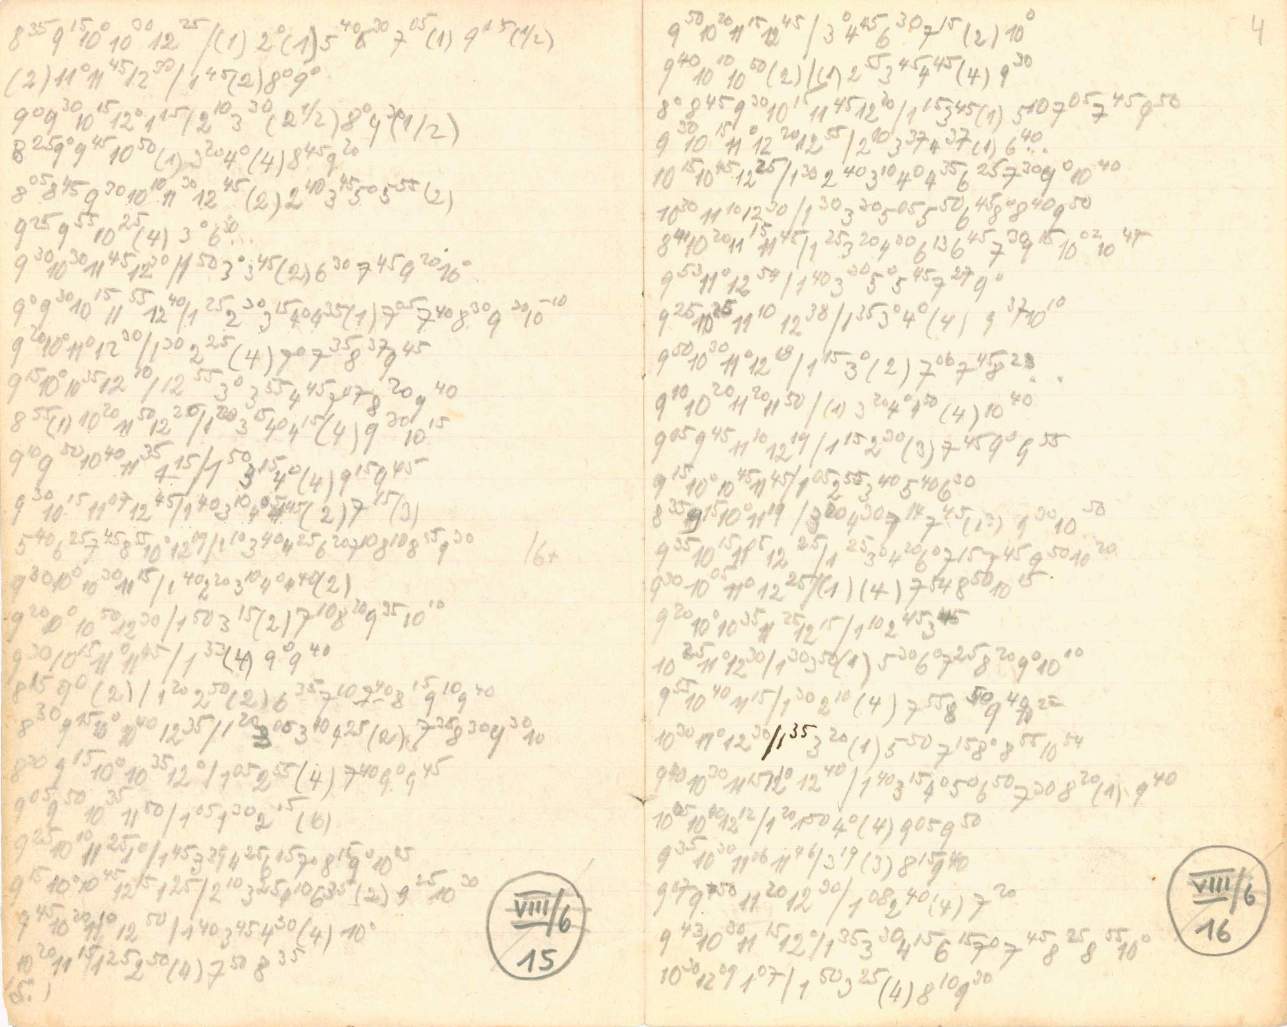 8³⁵ 9¹⁵ 10⁰ 10³⁰ 12²⁵ / (1) 2⁰ (1) 5⁴⁰ 6³⁰ 7⁰⁵ (1) 9¹⁵ (1/2)
(2) 11⁰ 11⁴⁵ 12³⁰ / 1⁴⁵ (2) 8⁰ 9⁰
9⁰ 9³⁰ 10¹⁵ 12⁰ 1¹⁵ / 2¹⁰ 3³⁰ (2 1/2) 8⁰ 9³⁰ (1/2)
8²⁵ 9⁰ 9⁴⁵ 10⁵⁰ (1) 3²⁰ 4⁰ (4) 8⁴⁵ 9²⁰
8⁰⁵ 8⁴⁵ 9³⁰ 10¹⁰ 11³⁰ 12⁴⁵ (2) 2⁴⁰ 3⁴⁵ 5⁰ 5⁵⁵ (2)
9²⁵ 9⁵⁵ 10²⁵ (4) 3⁰ 6³⁰
9³⁰ 10³⁰ 11⁴⁵ 12³⁰ / 1⁵⁰ 3⁰ 3⁴⁵ (2) 6³⁰ 7⁴⁵ 9²⁰ 10⁰
9⁰ 9³⁰ 10¹⁵ 11⁵⁵ 12⁴⁰ / 1²⁵ 2³⁰ 3¹⁵ 4⁰ 4³⁵ (1) 7⁰⁵ 7⁴⁰ 8³⁰ 9³⁰ 10¹⁰
9²⁰ 10⁰ 11⁰ 12³⁰ / 1³⁰ 2²⁵ (4) 7⁰ 7³⁵ 8³⁷ 9⁴⁵
9¹⁵ 10⁰ 10³⁵ 12¹⁰ / 12⁵⁵ 3⁰ 3⁵⁵ 4⁴⁵ 7⁰ 7 8²⁰ 9⁴⁰
8⁵⁵ (1) 10²⁰ 11⁵⁰ 12²⁵ / 1²⁰ 3¹⁵ 4⁰ 4¹⁵ (4) 9³⁰ 10¹⁵
9⁰ 9⁵⁰ 10⁴⁰ 11³⁵ 1¹⁵ / 1⁵⁰ 3¹⁵ 4⁰ (4) 9¹⁵ 9⁴⁵
9³⁰ 10¹⁵ 11⁰⁷ 12⁴⁵ / 1⁴⁰ 3¹⁰ (2) 7¹⁵ (3)
5⁴⁰ 6²⁵ 7⁴⁵ 8⁵⁵ 10⁰ 12¹⁷ / 1¹⁰ 3⁴⁰ 4²⁵ 6²⁰ 7¹⁰ 8¹⁰ 8⁵⁵ 9³⁰
9³⁰ 10⁰ 10³⁰ 11¹⁵ / 1⁴⁰ 2²⁰ 3¹⁰ 4⁰ 4⁴⁰ (2)
9²⁰ 10⁰ 10⁵⁰ 12³⁰ / 1⁵⁰ 3¹⁵ (2) 7¹⁰ 8²⁰ 9³⁵ 10¹⁰
9³⁰ 10¹⁵ 11⁰ 11⁴⁵ / 1³³ (4) 9⁰ 9⁴⁰
8¹⁵ 9⁰ (2) / 1²⁰ 2⁵⁰ (2) 6³⁵ 7¹⁰ 7⁴⁰ 8¹⁵ 9¹⁰ 9⁴⁰
8³⁰ 9¹⁵ 10⁰ 10⁴⁰ 12³⁵ / 1²⁵ 3⁰⁵ 3⁴⁰ 4²⁵ (2) 7³⁵ 8³⁰ 9³⁰ 10
8³⁰ 9¹⁵ 10⁰ 10³⁵ 12⁰ / 1⁰⁵ 2⁵⁵ (4) 7⁴⁰ 9⁰ 9⁴⁵
9⁰⁵ 9⁵⁰ 10³⁵ 11⁵⁰ / 1⁰⁵ 1³⁰ 2¹⁵ (6)
9²⁵ 10¹⁰ 11²⁵ 1⁰ / 1⁴⁵ 3³⁹ 4²⁵ 6¹⁵ 7⁰ 8¹⁵ 9⁰ 10²⁵
9¹⁵ 10⁰ 10⁴⁵ 12¹⁵ 1²⁵ / 2¹⁰ 3²⁵ (2) 9²⁵ 10³⁰
9⁴⁵ 10²⁰ 11¹⁰ 12⁵⁰ / 1⁴⁰ 3⁴⁵ 4³⁰ (4) 10⁰
10²⁰ 11¹⁵ / 1²⁵ 2⁵⁰ (4) 7⁵⁰ 8³⁵
VIII/6
15
4
9⁵⁰ 10²⁰ 11¹⁵ 12⁴⁵ / 3⁰ 4⁴⁵ 6³⁰ 7¹⁵ (2) 10⁰
9⁴⁰ 10¹⁰ 10⁵⁰ (2) / (1) 2⁵⁵ 3⁴⁵ 4⁴⁵ (4) 9³⁰
8⁰ 8⁴⁵ 9³⁰ 10¹⁵ 11⁴⁵ 12²⁰ / 1¹⁵ 3⁴⁵ (1) 5¹⁰ 7⁰⁵ 7⁴⁵ 9⁵⁰
9³⁰ 10¹⁵ 11⁰ 12²⁰ 12⁵⁵ / 2¹⁰ 3³⁷ 4³⁷ (1) 6⁴⁰
10¹⁵ 10⁴⁵ 12²⁵ / 1³⁰ 2⁴⁰ 3¹⁰ 4⁰ 4³⁵ 6²⁵ 7³⁰ 9⁰ 10⁴⁰
10²⁰ 11¹⁰ 12³⁰ / 1³⁰ 3³⁰ 5⁰⁵ 5⁵⁰ 6⁴⁵ 8⁰ 8⁴⁰ 9⁵⁰
8⁴¹ 10²⁰ 11¹⁵ 11⁴⁵ / 1²⁵ 3²⁰ 4⁰⁰ 6¹³ 6⁴⁵ 7³⁰ 9¹⁵ 10⁰² 10⁴⁷
9⁵³ 11⁰ 12⁵⁴ / 1⁴⁰ 3³⁰ 5⁰ 5⁴⁵ 7²⁷ 9⁰
9²⁵ 10²⁵ 11¹⁰ 12³⁸ / 1³⁵ 3⁰ 4⁰ (4) 9³⁷ 10¹⁰
9⁵⁰ 10³⁰ 11⁰ 12¹⁸ / 1¹⁵ 3⁰ (2) 7⁰⁶ 7⁴⁵ 8²³
9¹⁰ 10²⁰ 11²⁰ 11⁵⁰ / (1) 3²⁰ 4⁰ 4⁵⁰ (4) 10⁴⁰
9⁰⁵ 9⁴⁵ 11¹⁰ 12¹⁹ / 1¹⁵ 2³⁰ (3) 7⁴⁵ 9⁰ 9⁵⁵
9¹⁵ 10⁰ 10⁴⁵ 11⁴⁵ / 1⁰⁵ 2⁵⁵ 3⁴⁰ 5⁴⁰ 6³⁰
8³⁵ 9¹⁵ 10⁰ 11¹⁹ / 3⁰⁰ 4³⁰ 7¹⁴ 7⁴⁵ 9³⁰ 10⁵⁰
9³⁵ 10¹⁵ 11⁰⁵ 12²⁵ / 1²⁵ 3³⁰ 4²⁰ 6⁰ 7¹⁵ 7⁴⁵ 9⁵⁰ 10²⁰
9³⁰ 10⁰⁵ 11⁰ 12²⁵ / (1) (4) 7⁵⁴ 8⁵⁰ 10¹⁵
9²⁰ 10⁰ 10³⁵ 11²⁵ 12¹⁵ / 1¹⁰ 2⁴⁵ 3⁴⁵
10²⁵ 11⁰ 12³⁰ / 1³⁰ 3⁵⁰ (1) 5³⁰ 6⁰ 7²⁵ 8²⁰ 9⁰ 10¹⁰
9⁵⁵ 10⁴⁰ 11¹⁵ / 1³⁰ 2¹⁰ (4) 7⁵⁵ 8⁵⁰ 9⁴⁰ 10²⁵
10³⁰ 11⁰ 12³⁰ / 1³⁵ 3²⁰ (1) 5⁵⁰ 7¹⁵ 8⁰ 8⁵⁵ 10⁵⁴
9⁴⁰ 10³⁰ 11¹⁵ 12¹⁰ 12⁴⁰ / 1⁴⁰ 3¹⁵ 4⁰ 5⁰ 6⁵⁰ 7³⁰ 8²⁰ (1) 9⁴⁰
10⁰⁵ 10⁴⁰ 12¹² / 1²⁰ 1⁵⁰ 4⁰ (4) 9⁰⁵ 9⁵⁰
9³⁵ 10³⁰ 11⁰⁶ 11⁴⁶ / 3¹⁹ (3) 8¹⁵ 9⁴⁰
9⁰⁷ 9⁵⁰ 11²⁰ 12³⁰ / 1⁰⁸ 2⁴⁰ (4) 7²⁰
9⁴³ 10³⁰ 11¹⁵ 12⁰ / 1³⁵ 3³⁰ 4¹⁵ 6¹⁵ 7⁰ 7⁴⁵ 8²⁵ 8⁵⁵ 10⁰
10³⁰ 12⁰⁹ 1⁰⁷ / 1⁵⁰ 3²⁵ (4) 8¹⁰ 9³⁰
VIII/6
16